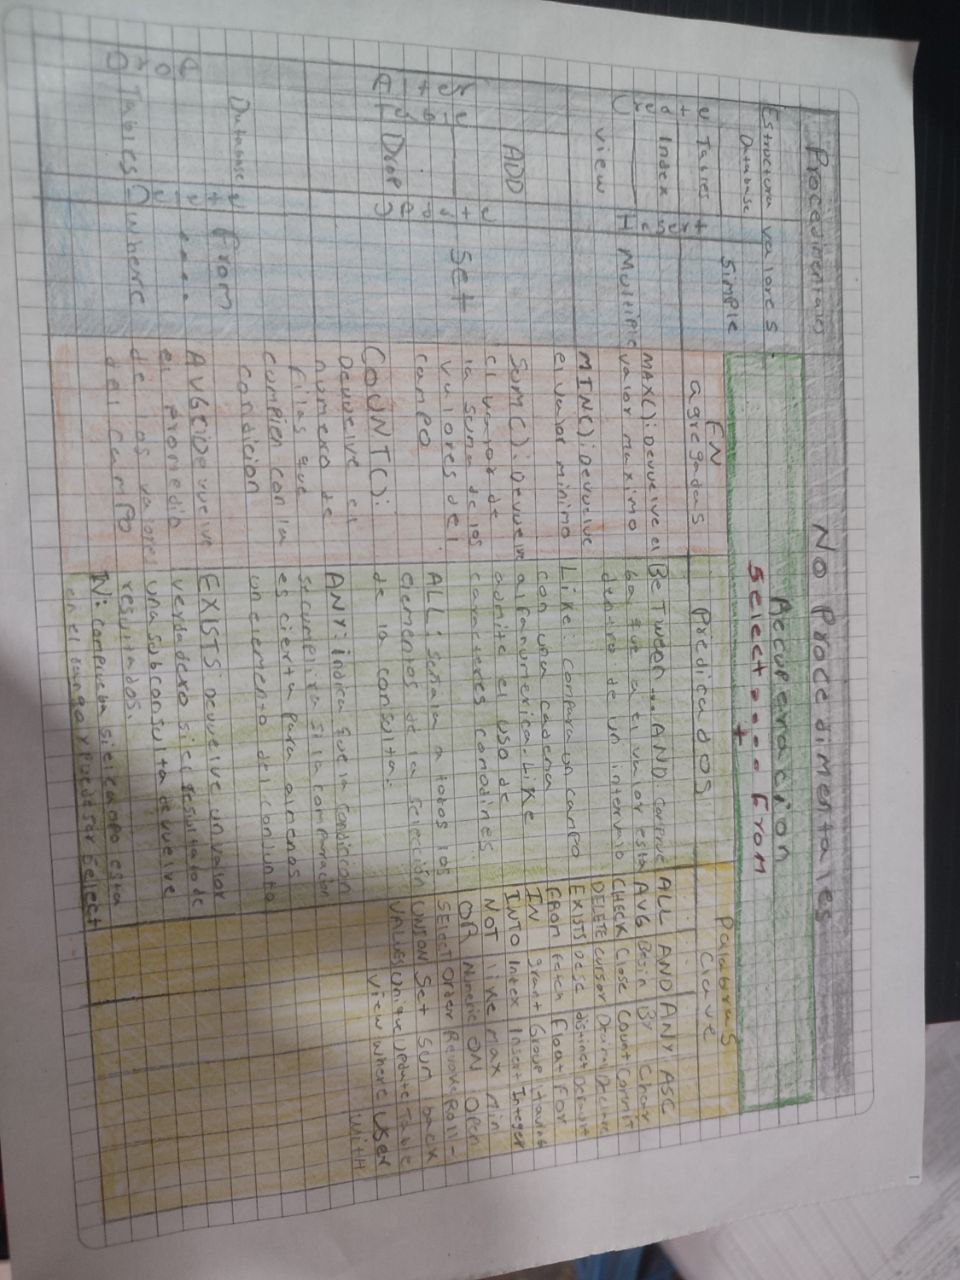 Procedimentales
No Procedimentales
Estructura
valores
Recuperación
Database
Simple
Select .... From
+
Tables
Index
View
Create
Insert
Multiple
ADD
Drop
Set
Database
Tables
Drop
From
....
where
FN
agregadas
MAX(): Devuelve el
valor maximo
MIN(): Devuelve
el valor minimo
SUM(): Devuelve
el valor de
la suma de los
valores del
campo
COUNT():
Devuelve el
numero de
filas que
cumplen con la
condicion
AVG() Devuelve
el promedio
de los valores
del campo
Predicados
BeTween ... AND
que el valor esta
dentro de un intervalo
Like: compara un campo
con una cadena
alfanumerica. Like
admite el uso de
caracteres comodines
ALL: Señala a todos los
elementos de la selección
de la consulta.
ANY: indica que la condición
se cumplira si la comparacion
es cierta para al menos
un elemento del conjunto
EXISTS devuelve un valor
verdadero si el resultado de
una subconsulta devuelve
resultados.
IN: comprueba si el campo esta
en el rango y puede ser select
Palabras
Clave
ALL AND ANY ASC
AVG Begin BY Char
CHECK Close Count Commit
DELETE Cursor Decimal Declare
EXISTS Desc distinct Default
FROM fetch Float For
IN grant Group Having
INTO Index Insert Integer
NOT Like Max Min
OR Numeric ON Open
SELECT Order Revoke Roll-
UNION Set Sum back
VALUES Unique Update Table
View where User
With